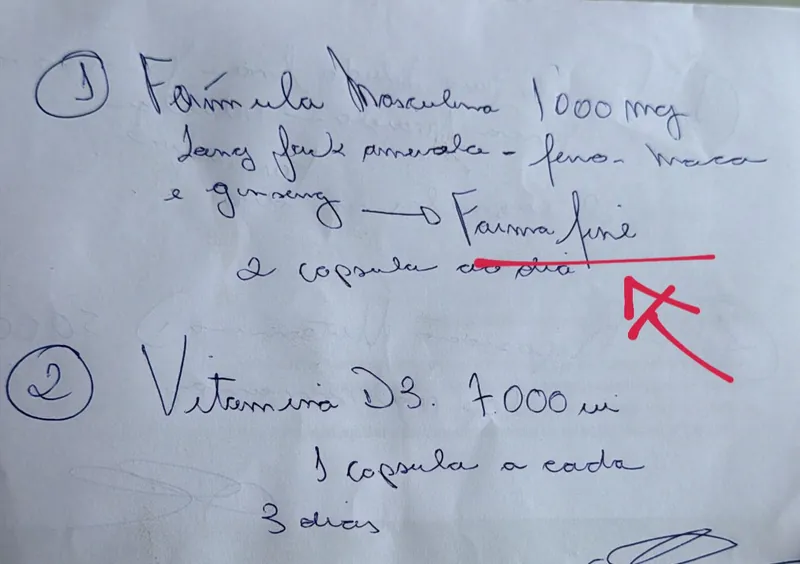 1 Fórmula Masculina 1000 mg
Long Jack amerola - feno - maca
e ginseng → Farma finé
2 capsula ao dia
2 Vitamina D3. 7.000 ui
1 capsula a cada
3 dias